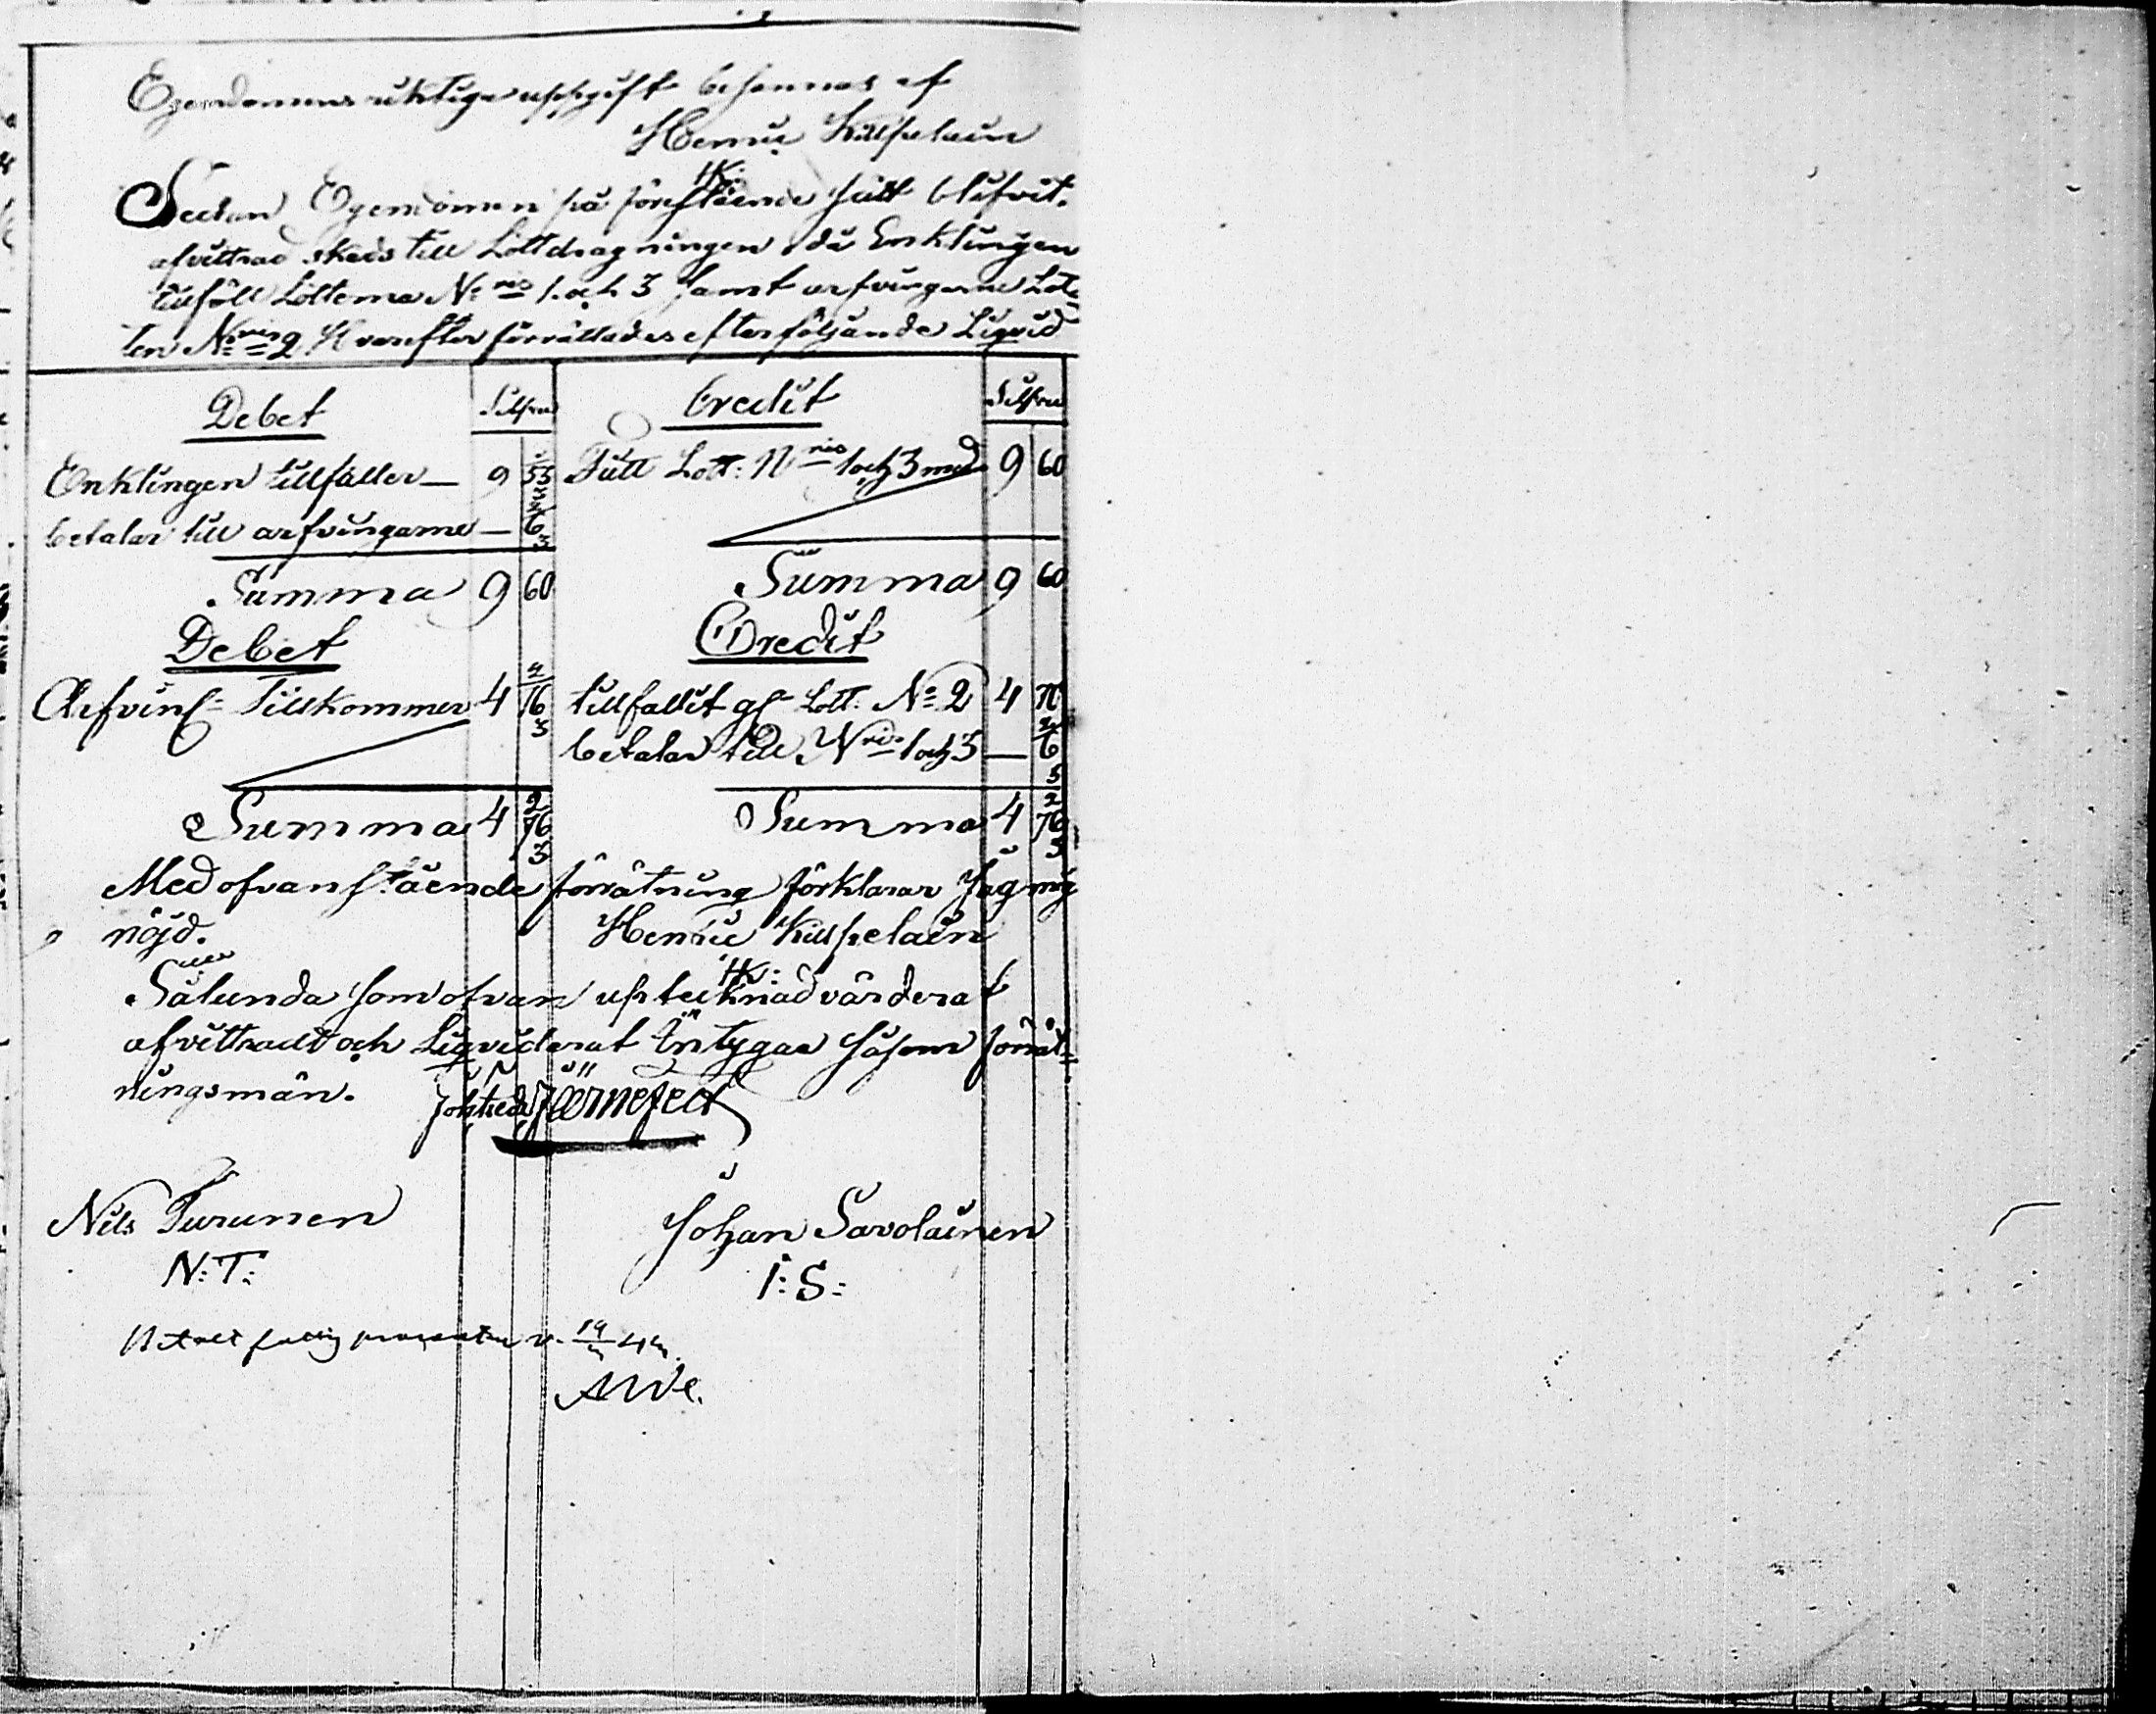 Egendomens riktiga uppgift besannas af
Henric Kilpelain
HK:
Sedan Egendomen på föreståend sätt blifvit
afvittrad skeds till Lottdragningen då Enklingen
tillföll Lotterna N:ris 1. och 3 samt arfvingarne Lot=
ten N:ris 2 Hvarefter förrättades efterföljande Liqvid
Debet Silfver Credit Silfver
Enklingen tillfaller — 9 53 1/3 Fått Lott: N ris 1 och 3 med 9 60
betalar till arfvingarne — 6 2/3
Summa 9 60 Summa 9 60
Debet Credit
Arfving: Tillkommer 4 76 2/3 tillfallit gl Lott: N:o 2 4 70
betalar till N ris 1 och 3 — 6 2/3
Summa 4 76 2/3 Summa 4 76 2/3
Med ofvanstående förrätning förklarar Jag mig
nöjd. Henric Kilpelain
HK:
Sålunda som ofvan uptecknad värderat
afvittradt och Liqviderat Intygas såsom förrät=
ningsmän. Joh: Fredr Jærnefelt
Nils Turunen Johan Savolainen
N:T: I:S: